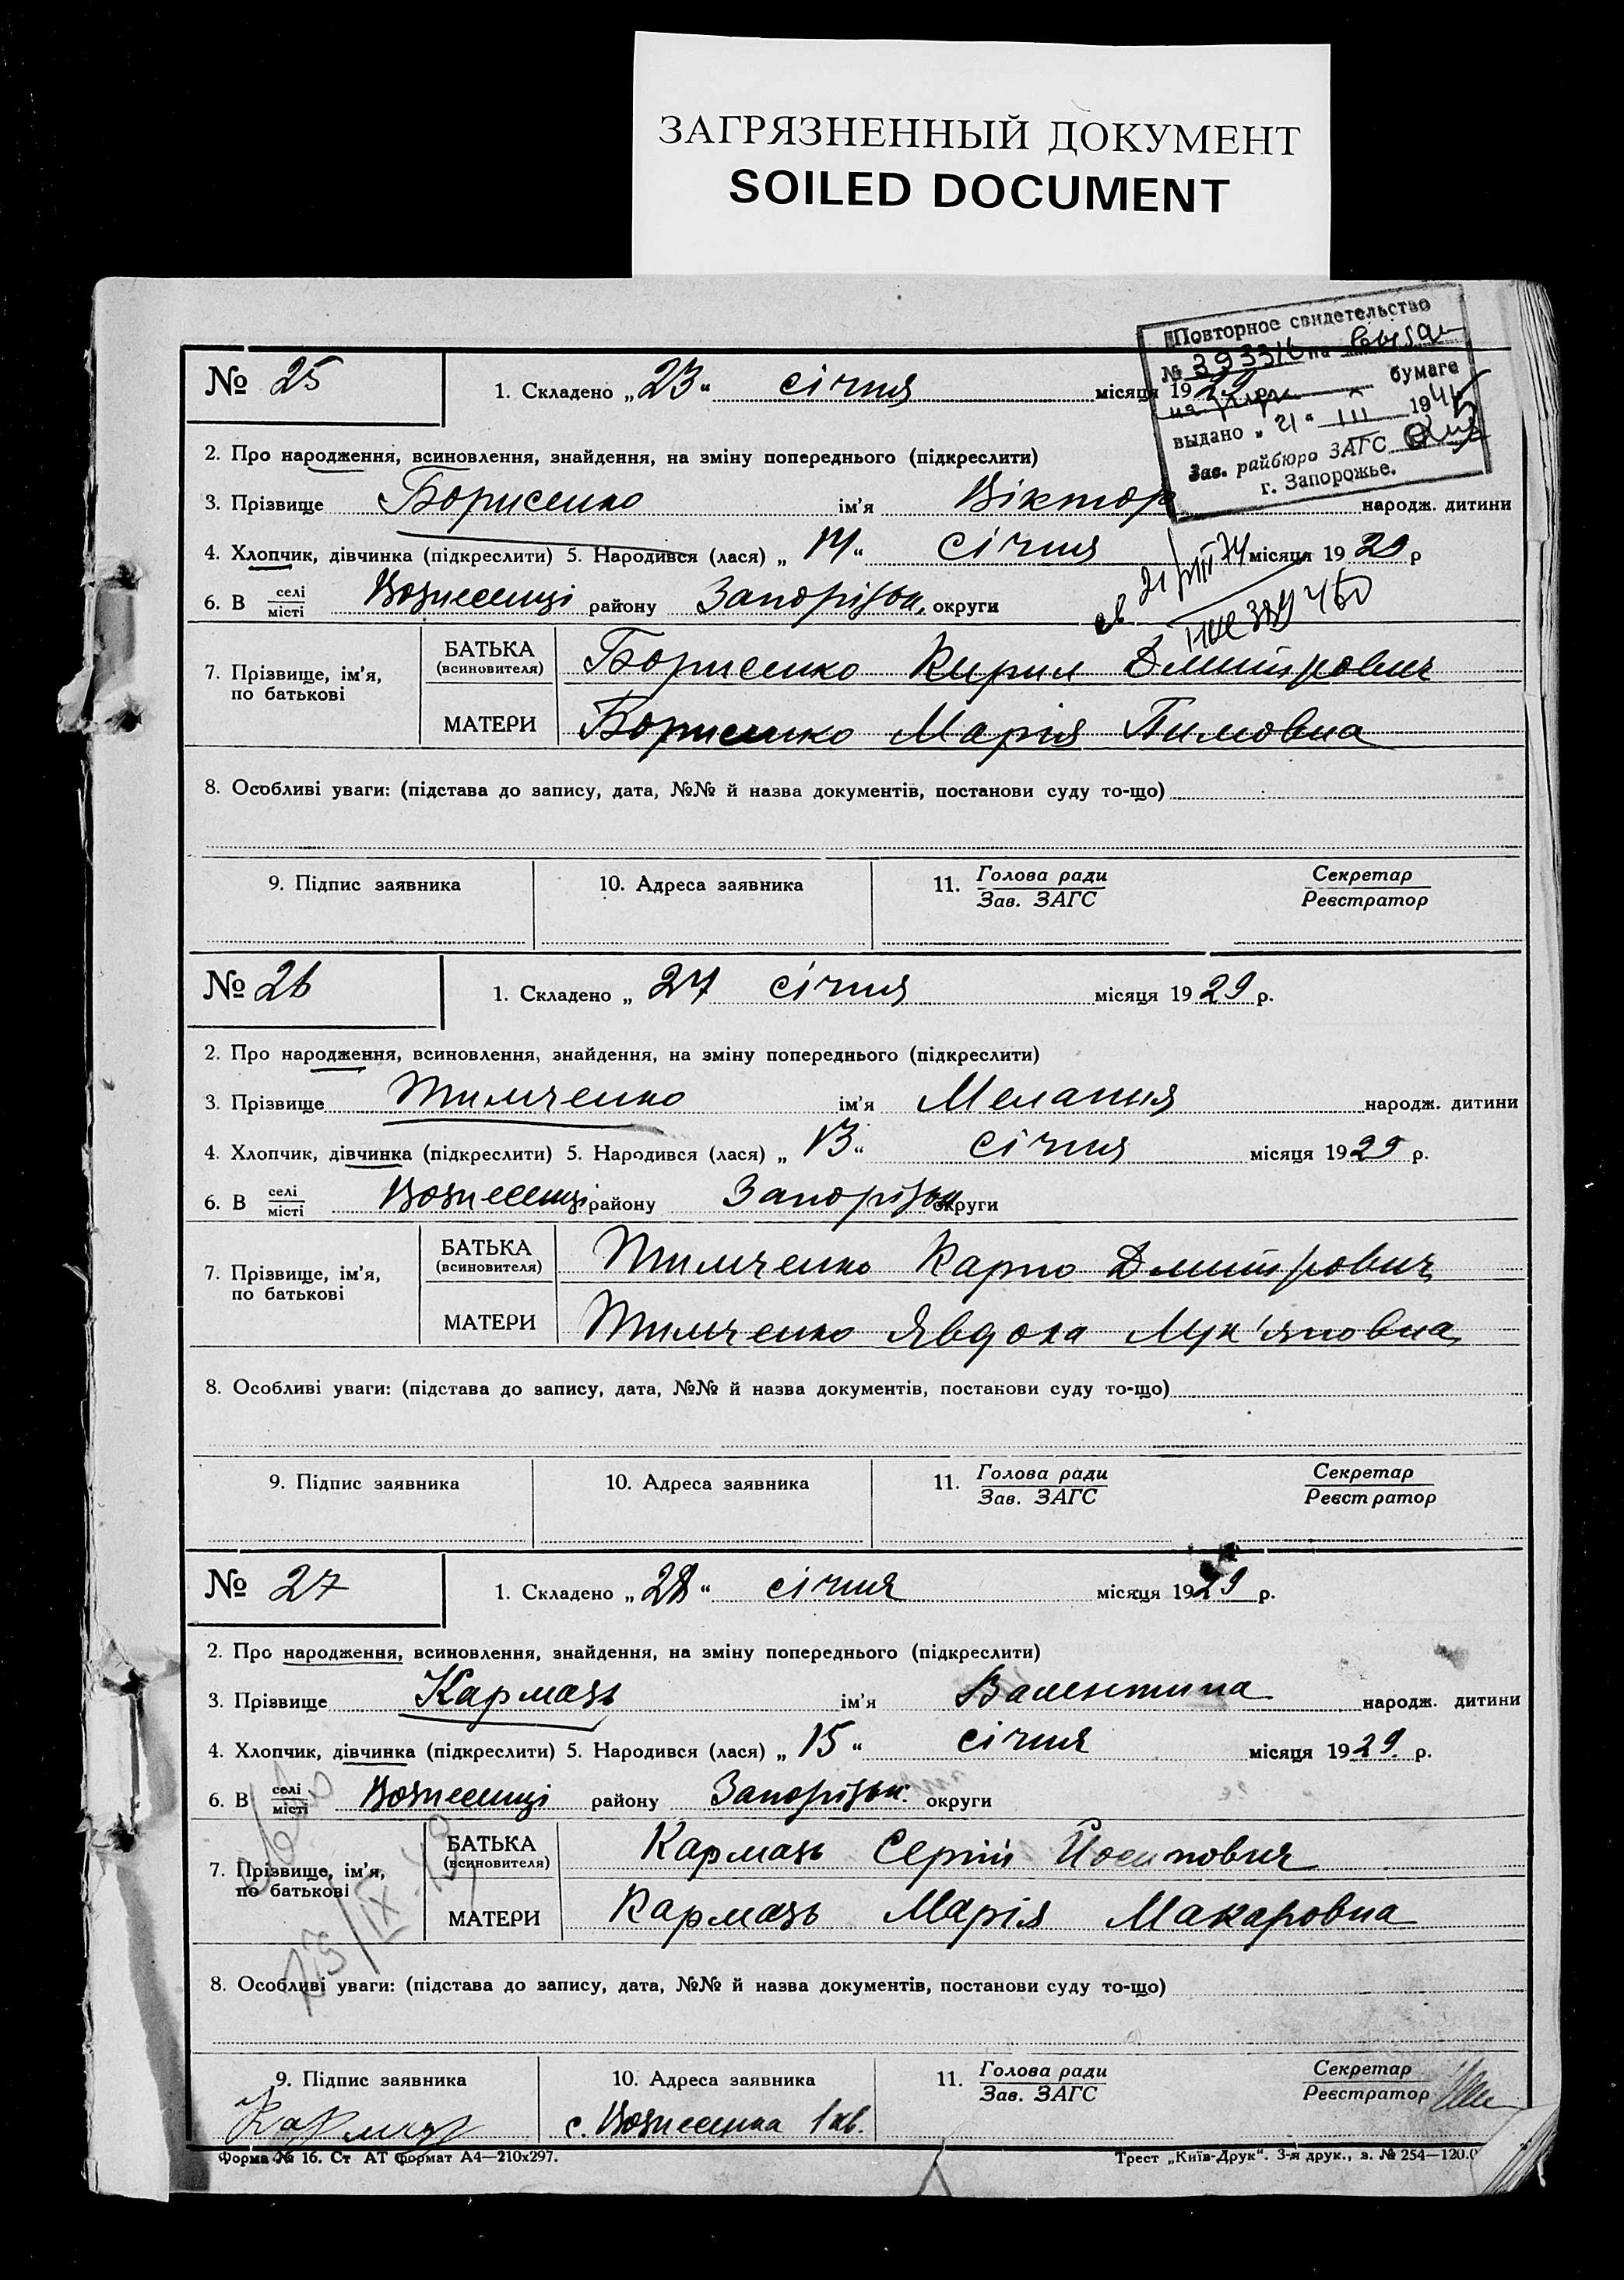 ЗАГРЯЗНЕННЫЙ ДОКУМЕНТ
SOILED DOCUMENT
Повторное свидетельство
№ на
бумаге
выдано „21“ III 194
Зав. райбюро ЗАГС
г. Запорожье.
№ 25
1. Складено „23“ січня місяця 1929 р.
2. Про народження, всиновлення, знайдення, на зміну попереднього (підкреслити)
3. Прізвище Борисенко ім’я Віктор народж. дитини
4. Хлопчик, дівчинка (підкреслити) 5. Народився (лася) „ “ січня місяця 1929 р
6. В селі/місті Вознесенці району Запорізьк. округи
7. Прізвище, ім’я, по батькові
БАТЬКА (всиновителя) Борисенко Кирил Дмитрович
МАТЕРИ Борисенко Марія Пимовна
8. Особливі уваги: (підстава до запису, дата, №№ й назва документів, постанови суду то-що)
9. Підпис заявника 10. Адреса заявника 11. Голова ради/Зав. ЗАГС Секретар/Реєстратор
№ 26
1. Складено „27 січня місяця 1929 р.
2. Про народження, всиновлення, знайдення, на зміну попереднього (підкреслити)
3. Прізвище Тимченко ім’я Мелания народж. дитини
4. Хлопчик, дівчинка (підкреслити) 5. Народився (лася) „13“ січня місяця 1929 р.
6. В селі/місті Вознесенці району Запорізьк округи
7. Прізвище, ім’я, по батькові
БАТЬКА (всиновителя) Тимченко Карпо Дмитрович
МАТЕРИ Тимченко Явдоха Лук’яновна
8. Особливі уваги: (підстава до запису, дата, №№ й назва документів, постанови суду то-що)
9. Підпис заявника 10. Адреса заявника 11. Голова ради/Зав. ЗАГС Секретар/Реєстратор
№ 27
1. Складено „28“ січня місяця 1929 р.
2. Про народження, всиновлення, знайдення, на зміну попереднього (підкреслити)
3. Прізвище Кармазь ім’я Валентина народж. дитини
4. Хлопчик, дівчинка (підкреслити) 5. Народився (лася) „15“ січня місяця 1929 р.
6. В селі/місті Вознесенці району Запорізьк. округи
7. Прізвище, ім’я, по батькові
БАТЬКА (всиновителя) Кармазь Сергій Йосипович
МАТЕРИ Кармазь Марія Макаровна
8. Особливі уваги: (підстава до запису, дата, №№ й назва документів, постанови суду то-що)
9. Підпис заявника 10. Адреса заявника 11. Голова ради/Зав. ЗАГС Секретар/Реєстратор
с. Вознесенка 1 кв.
Форма № 16. Ст АТ формат А4—210х297.
Трест „Київ-Друк“. 3-я друк., з. № 254—120.0